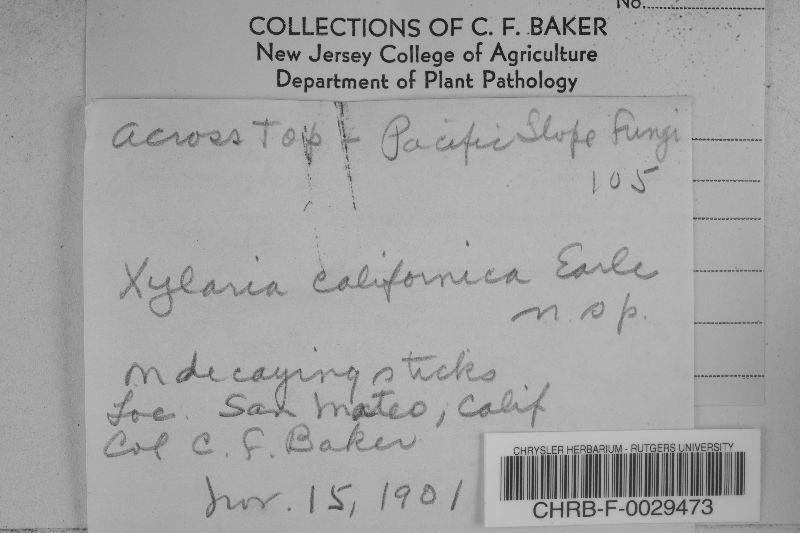 No.
COLLECTIONS OF C. F. BAKER
New Jersey College of Agriculture
Department of Plant Pathology
across Top - Pacific Slope Fungi
105
Xylaria californica Earle
n. sp.
on decaying sticks
Loc. San Mateo, Calif
Col C. F. Baker
Nov. 15, 1901
CHRYSLER HERBARIUM - RUTGERS UNIVERSITY
CHRB-F-0029473